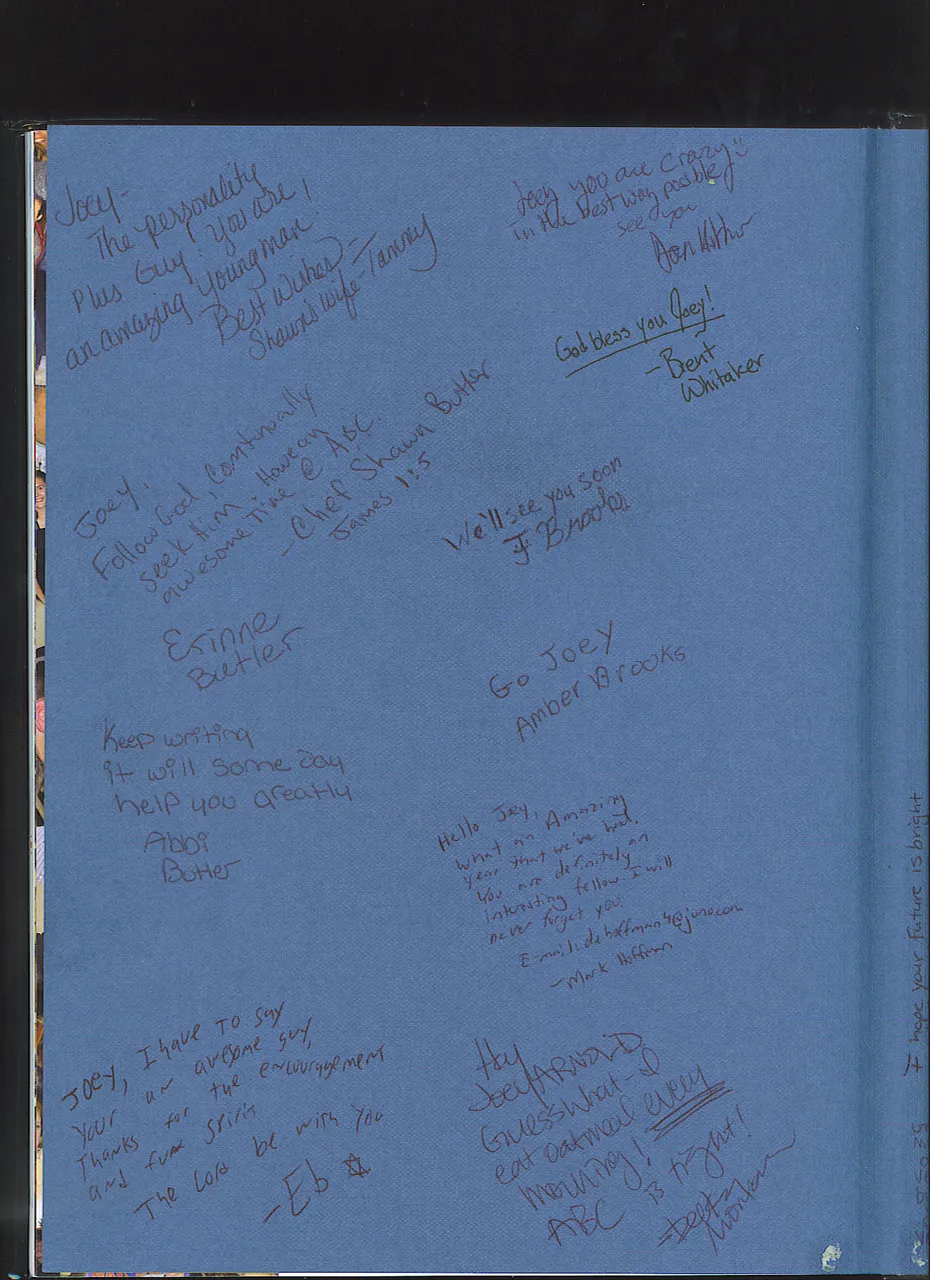 Joey-
The personality
Plus Guy! You are
an amazing young man!
Best Wishes -
Shawn's wife - Tammy
Joey,
Follow God, Continually
seek Him. Have an
awesome Time @ ABC.
- Chef Shawn Butler
James 1:5
Erinne
Butler
Keep writing
it will some day
help you greatly
Abbi
Butler
JOEY, I have TO say
Your an awesome guy,
Thanks for the encouragement
and fun spirit
The Lord be with You
- Eb
Joey you are crazy
in the best way possible
see you
God bless you Joey!
- Brent
Whitaker
We'll see you soon
Brooks
Go Joey
Amber Brooks
Hello Joey,
What an Amazing
year that we've had.
You are definitely an
interesting fellow I will
never forget you
E-mail:
- Mark Hoffman
Hey
Joey ARNOLD,
Guess what - I
eat oatmeal every
morning!
ABC is tight!
I hope your future is bright